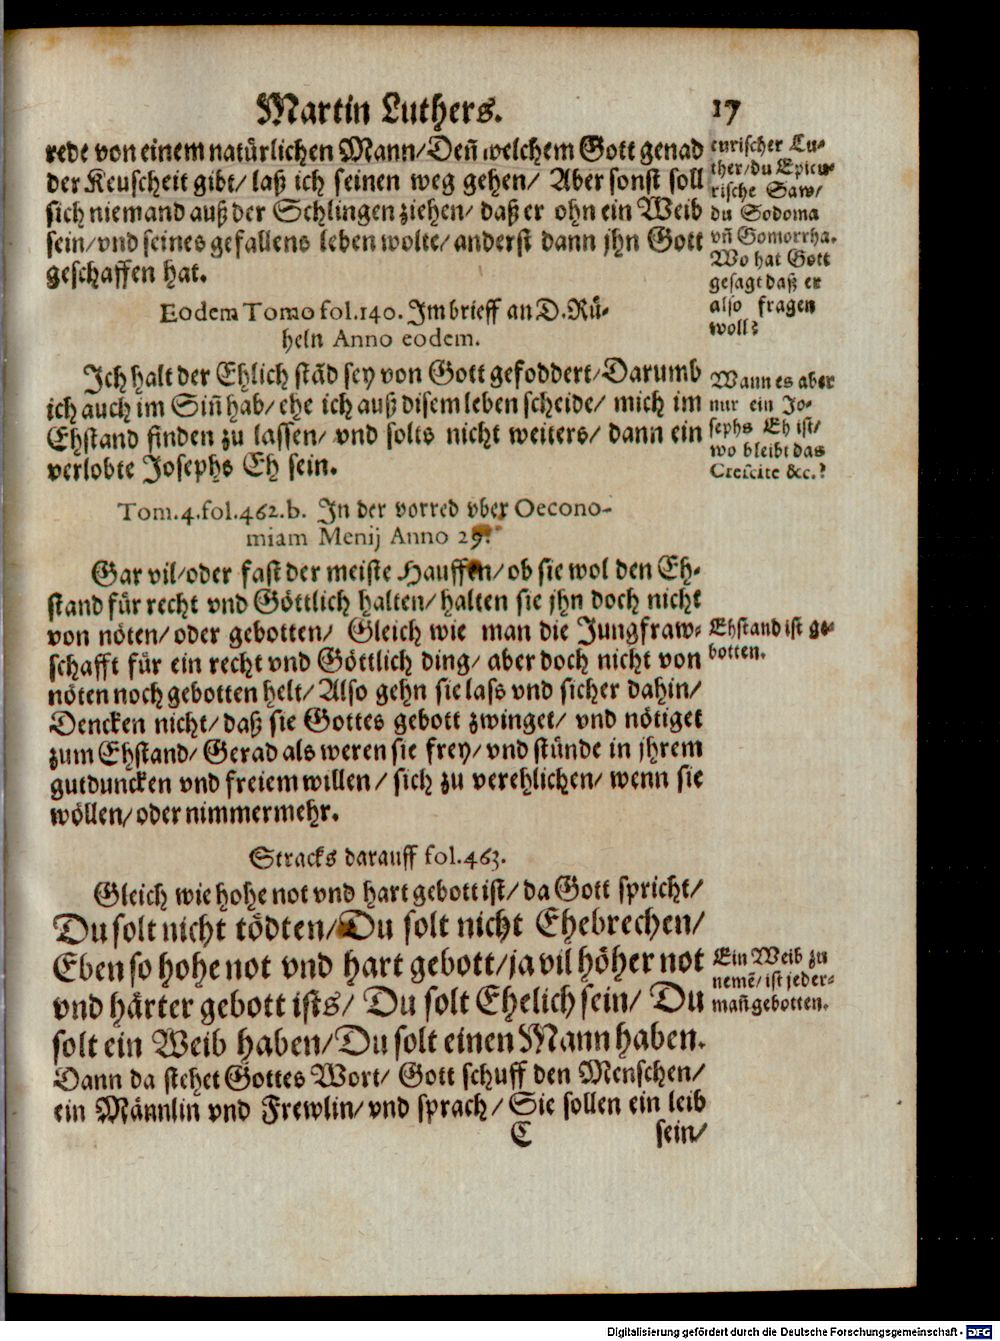 Martin Luthers. 17
rede von einem natürlichen Mann/Deñ welchem Gott genad
der Keuscheit gibt/ laß ich seinen weg gehen/ Aber sonst soll
sich niemand auß der Schlingen ziehen/ daß er ohn ein Weib
sein/vnd seines gefallens leben wolte/anderst dann jhn Gott
geschaffen hat.
curischer Lu-
ther/du Epicu-
rische Saw/
du Sodoma
vñ Gomorrha.
Wo hat Gott
gesagt daß er
also fragen
woll?
Eodem Tomo fol.140. Im brieff an D.Rü-
heln Anno eodem.
Ich halt der Ehlich stād sey von Gott gefoddert/Darumb
ich auch im Siñ hab/ ehe ich auß disem leben scheide/ mich im
Ehstand finden zu lassen/ vnd solts nicht weiters/ dann ein
verlobte Josephs Eh sein.
Wann es aber
nur ein Jo-
sephs Eh ist/
wo bleibt das
Crescite &c.?
Tom.4.fol.462.b. In der vorred vber Oecono-
miam Menij Anno 29.
Gar vil/oder fast der meiste Hauffen/ob sie wol den Eh-
stand für recht vnd Göttlich halten/halten sie jhn doch nicht
von nöten/oder gebotten/ Gleich wie man die Jungfraw-
schafft für ein recht vnd Göttlich ding/ aber doch nicht von
nöten noch gebotten helt/Also gehn sie lass vnd sicher dahin/
Dencken nicht/daß sie Gottes gebott zwinget/ vnd nötiget
zum Ehstand/Gerad als weren sie frey/vnd stünde in jhrem
gutduncken vnd freiem willen/ sich zu verehlichen/ wenn sie
wöllen/oder nimmermehr.
Ehstand ist ge-
botten.
Stracks darauff fol.463.
Gleich wie hohe not vnd hart gebott ist/ da Gott spricht/
Du solt nicht tödten/Du solt nicht Ehebrechen/
Eben so hohe not vnd hart gebott/ja vil höher not
vnd härter gebott ists/ Du solt Ehelich sein/ Du
solt ein Weib haben/Du solt einen Mann haben.
Dann da stehet Gottes Wort/ Gott schuff den Menschen/
ein Männlin vnd Frewlin/vnd sprach/ Sie sollen ein leib
Ein Weib zu
nemē/ist jeder-
mañ gebotten.
C sein/
Digitalisierung gefördert durch die Deutsche Forschungsgemeinschaft - DFG